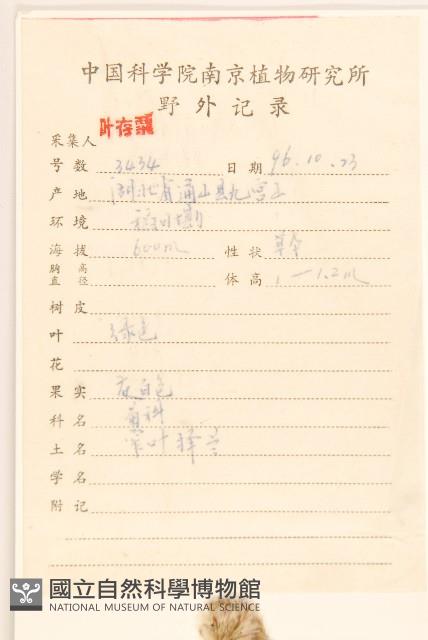 中国科学院南京植物研究所
野外记录
采集人 叶存粟
号数 3434 日期 96.10.23
产地 湖北省通山县九宫山
环境
海拔 600m 性状 草本
胸高直径 体高 1—1.2m
树皮
叶 绿色
花
果实 灰白色
科名 菊科
土名 窄叶泽兰
学名
附记
國立自然科學博物館
NATIONAL MUSEUM OF NATURAL SCIENCE